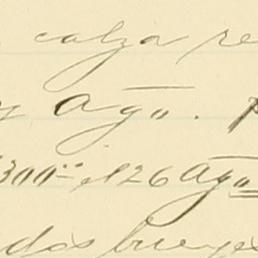 calza re
y Ago. P
300 el 26 Ago
dos bueyes